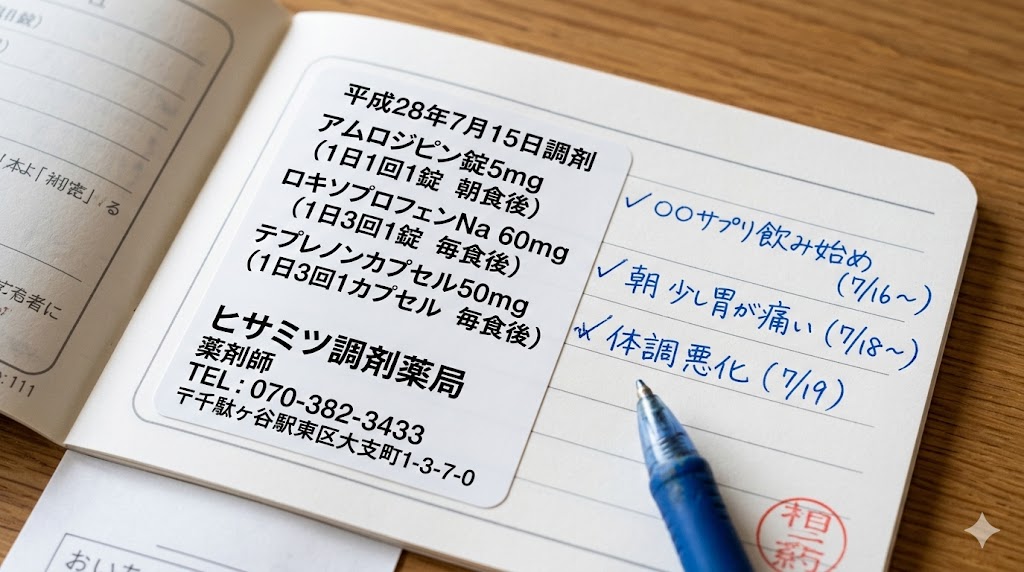 平成28年7月15日調剤
アムロジピン錠5mg
(1日1回1錠 朝食後)
ロキソプロフェンNa 60mg
(1日3回1錠 毎食後)
テプレノンカプセル50mg
(1日3回1カプセル 毎食後)
ヒサミツ調剤薬局
薬剤師
TEL : 070-382-3433
〒千駄ヶ谷駅東区大支町1-3-7-0
✓ ○○サプリ飲み始め
(7/16〜)
✓ 朝 少し胃が痛い (7/18〜)
✓ 体調悪化 (7/19)
:111